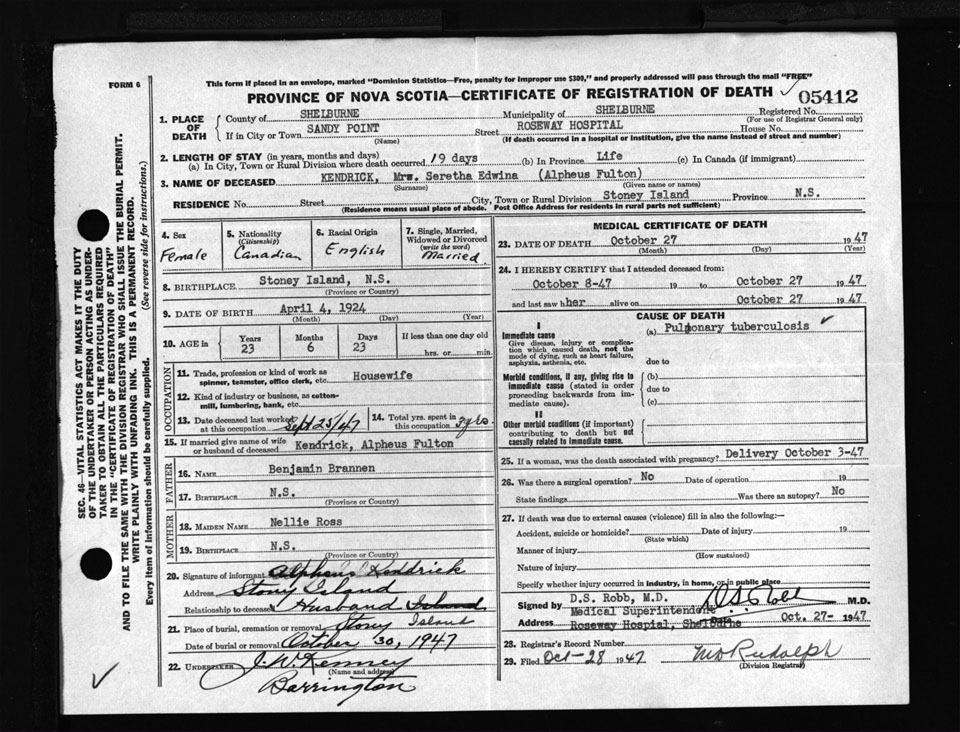 FORM 6
This form if placed in an envelope, marked "Dominion Statistics—Free, penalty for improper use $300," and properly addressed will pass through the mail "FREE"
PROVINCE OF NOVA SCOTIA—CERTIFICATE OF REGISTRATION OF DEATH
05412
1. PLACE OF DEATH
County of SHELBURNE Municipality of SHELBURNE Registered No.
(For use of Registrar General only)
If in City or Town SANDY POINT Street ROSEWAY HOSPITAL House No.
(Name) (If death occurred in a hospital or institution, give the name instead of street and number)
2. LENGTH OF STAY (in years, months and days)
(a) In City, Town or Rural Division where death occurred 19 days (b) In Province Life (c) In Canada (if immigrant)
3. NAME OF DECEASED KENDRICK, Mrs. Seretha Edwina (Alpheus Fulton)
(Surname) (Given name or names)
RESIDENCE No. Street City, Town or Rural Division Stoney Island Province N.S.
(Residence means usual place of abode. Post Office Address for residents in rural parts not sufficient)
4. Sex
Female
5. Nationality
(Citizenship)
Canadian
6. Racial Origin
English
7. Single, Married, Widowed or Divorced
(write the word)
Married
8. BIRTHPLACE Stoney Island, N.S.
(Province or Country)
9. DATE OF BIRTH April 4, 1924
(Month) (Day) (Year)
10. AGE in
Years Months Days If less than one day old
23 6 23 hrs. or min.
OCCUPATION
11. Trade, profession or kind of work as spinner, teamster, office clerk, etc. Housewife
12. Kind of industry or business, as cotton-mill, lumbering, bank, etc.
13. Date deceased last worked at this occupation Sept 25/47
14. Total yrs. spent in this occupation 3 yrs
15. If married give name of wife or husband of deceased Kendrick, Alpheus Fulton
FATHER
16. NAME Benjamin Brannen
17. BIRTHPLACE N.S.
(Province or Country)
MOTHER
18. MAIDEN NAME Nellie Ross
19. BIRTHPLACE N.S.
(Province or Country)
20. Signature of informant Alpheus Kendrick
Address Stony Island
Relationship to deceased Husband Island
21. Place of burial, cremation or removal Stony Island
Date of burial or removal October 30, 1947
22. UNDERTAKER J. W. Kenney
(Name and address)
Barrington
MEDICAL CERTIFICATE OF DEATH
23. DATE OF DEATH October 27 1947
(Month) (Day) (Year)
24. I HEREBY CERTIFY that I attended deceased from:
October 8-47 19 to October 27 1947
and last saw h her alive on October 27 1947
CAUSE OF DEATH
I
Immediate cause
Give disease, injury or complication which caused death, not the mode of dying, such as heart failure, asphyxia, asthenia, etc.
(a) Pulmonary tuberculosis
due to
Morbid conditions, if any, giving rise to immediate cause (stated in order proceeding backwards from immediate cause).
(b)
due to
(c)
II
Other morbid conditions (if important) contributing to death but not causally related to immediate cause.
25. If a woman, was the death associated with pregnancy? Delivery October 3-47
26. Was there a surgical operation? No Date of operation 19
State findings Was there an autopsy? No
27. If death was due to external causes (violence) fill in also the following:—
Accident, suicide or homicide? Date of injury 19
(State which)
Manner of injury
(How sustained)
Nature of injury
Specify whether injury occurred in industry, in home, or in public place
Signed by D.S. Robb, M.D. D S Robb M.D.
Medical Superintendent
Roseway Hospial, Shelburne Oct. 27- 1947
28. Registrar's Record Number
29. Filed Oct-28 1947 M D Rudolph
(Division Registrar)
SEC. 46- VITAL STATISTICS ACT MAKES IT THE DUTY
OF THE UNDERTAKER OR PERSON ACTING AS UNDER-
TAKER TO OBTAIN ALL THE PARTICULARS REQUIRED
IN THE "CERTIFICATE OF REGISTRATION OF DEATH"
AND TO FILE THE SAME WITH THE DIVISION REGISTRAR WHO SHALL ISSUE THE BURIAL PERMIT.
WRITE PLAINLY WITH UNFADING INK. THIS IS A PERMANENT RECORD.
Every item of information should be carefully supplied. (See reverse side for instructions).